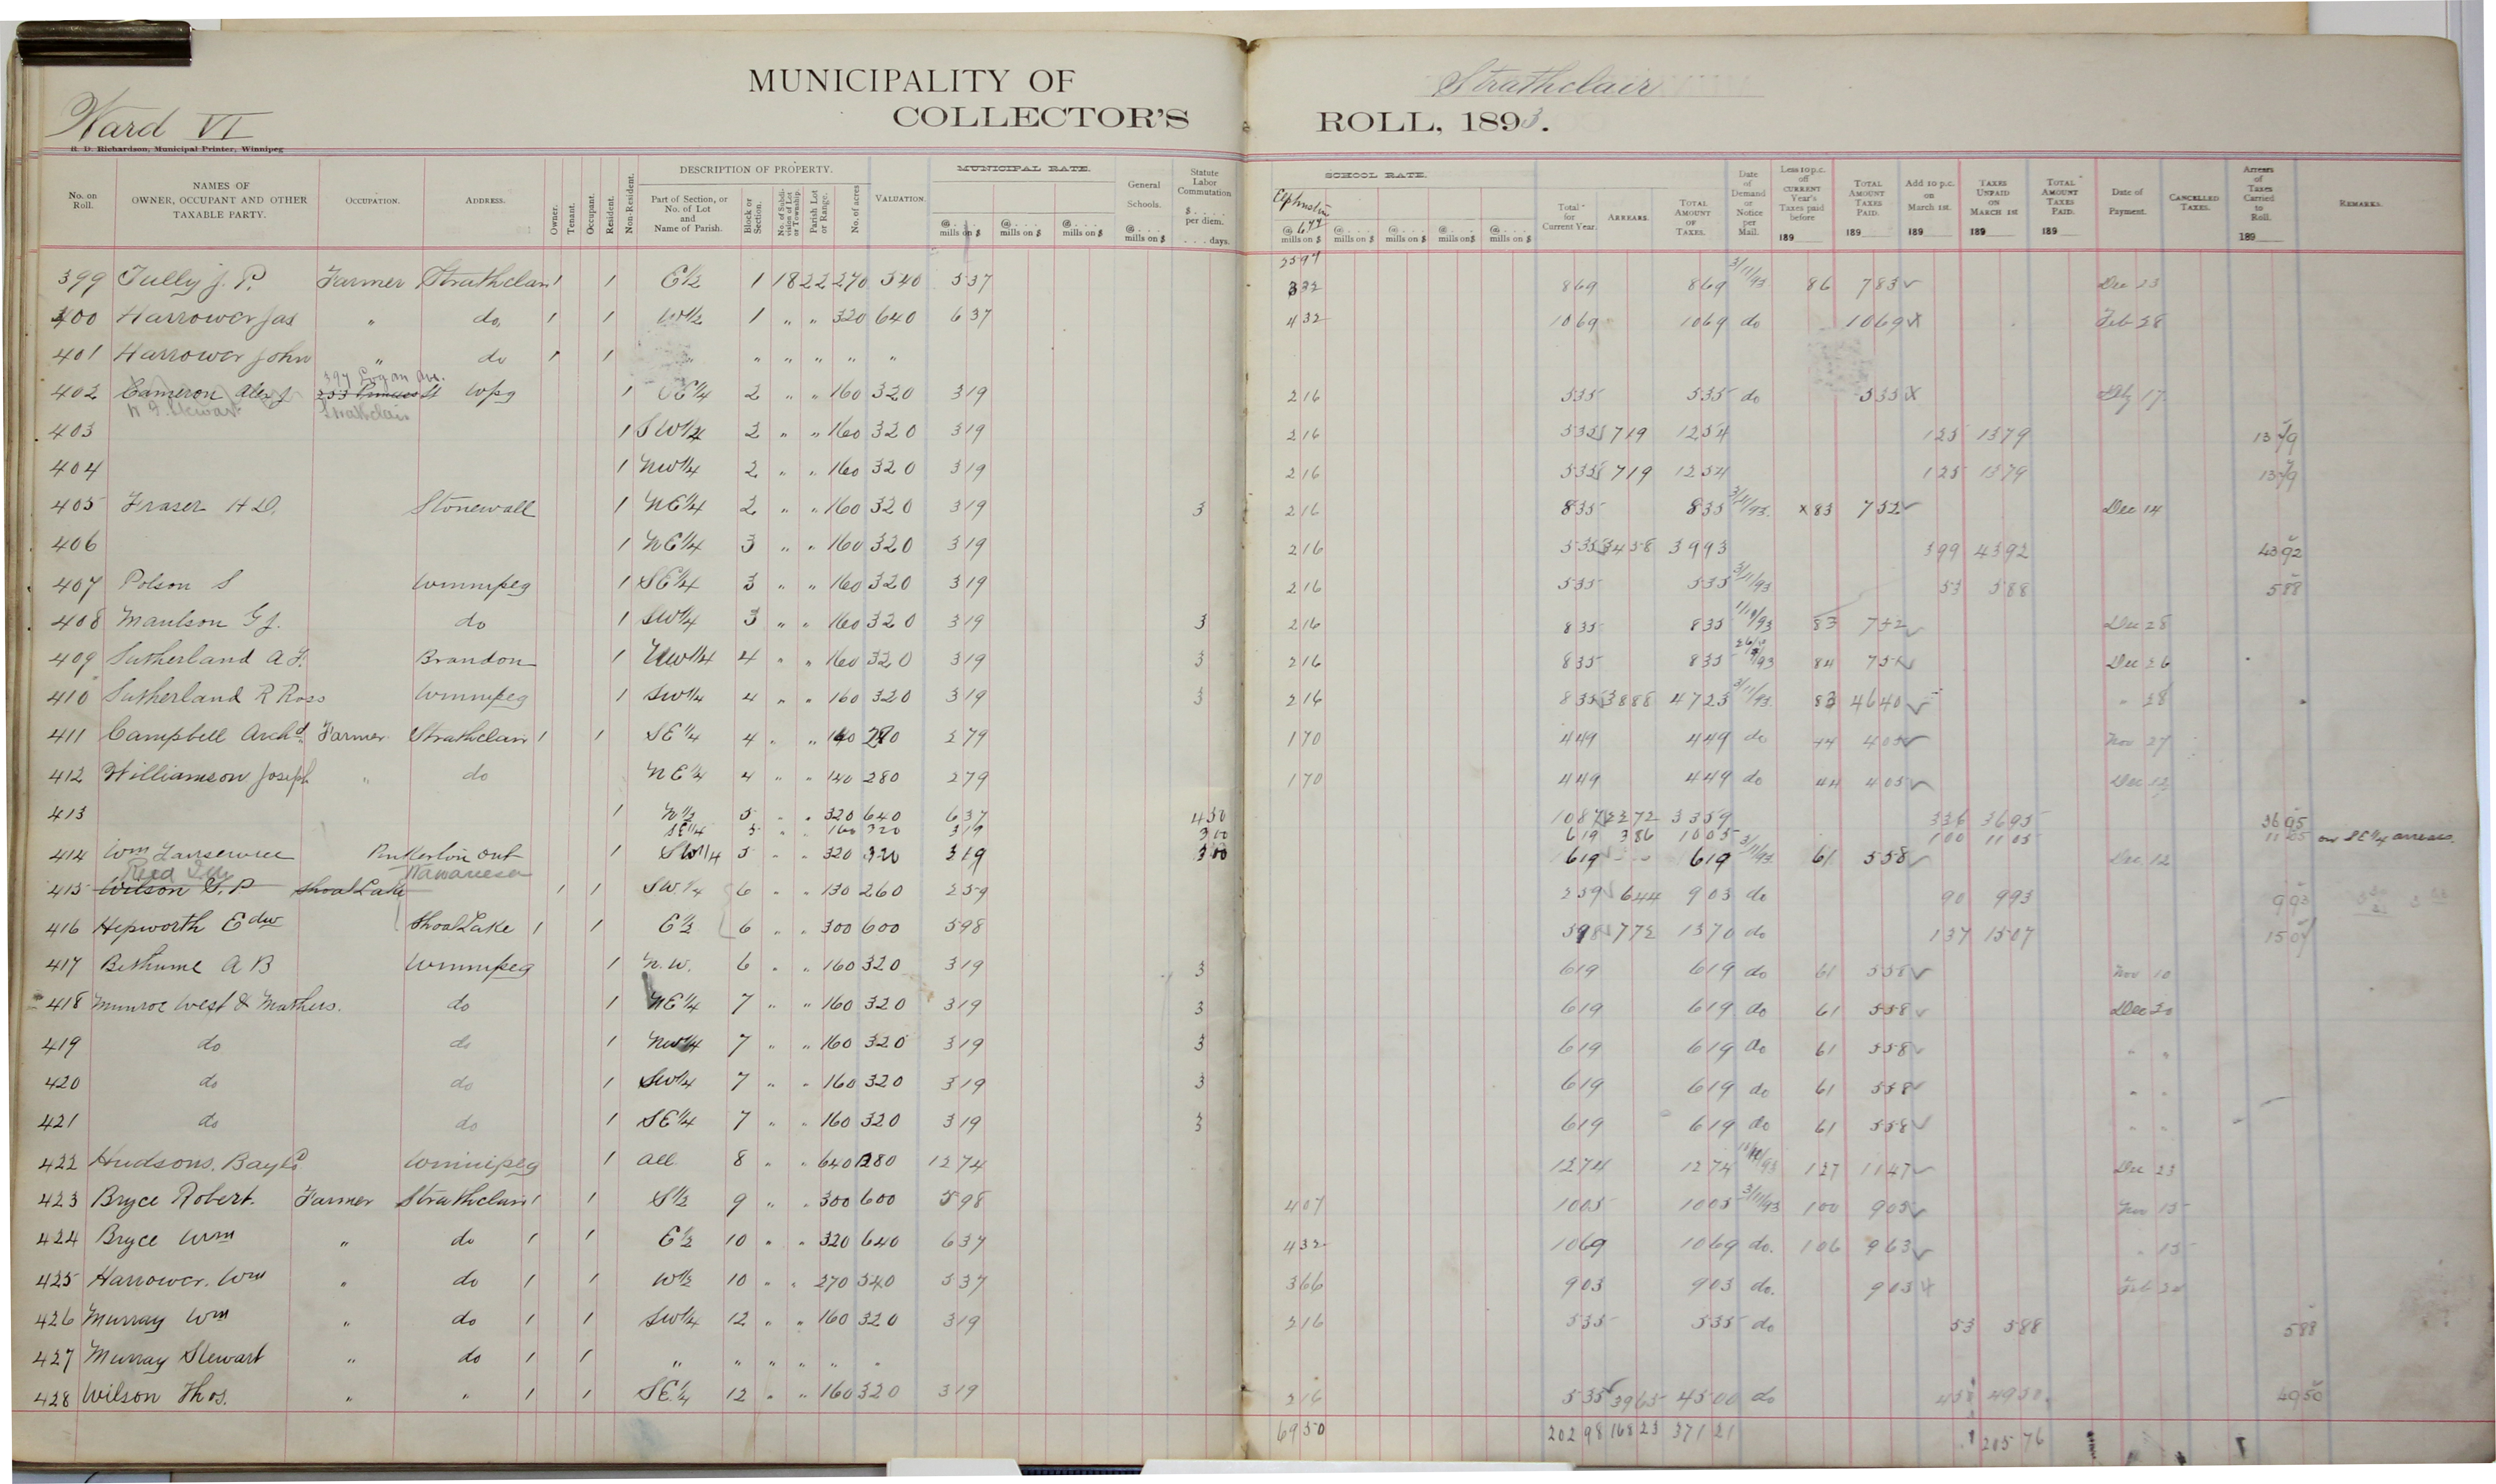 MUNICIPALITY OF Strathclair
Ward VI COLLECTOR'S ROLL, 1893.
R. D. Richardson, Municipal Printer, Winnipeg
No. on Roll. NAMES OF OWNER, OCCUPANT AND OTHER TAXABLE PARTY. OCCUPATION. ADDRESS. Owner. Tenant. Occupant. Resident. Non-Resident. DESCRIPTION OF PROPERTY. Part of Section, or No. of Lot and Name of Parish. Block or Section. No. of Subdivision of Lot or Township. Parish Lot or Range. No. of acres VALUATION. MUNICIPAL RATE. @ .... mills on $ @ .... mills on $ @ .... mills on $ General Schools. @ .... mills on $ Statute Labor Commutation $ .... per diem. .... days. SCHOOL RATE. @ mills on $ @ .... mills on $ @ .... mills on $ @ .... mills on $ @ .... mills on $ Total for Current Year. ARREARS. TOTAL AMOUNT OF TAXES. Date of Demand or Notice per Mail. Less 10 p.c. off CURRENT Year's Taxes paid before 189 TOTAL AMOUNT TAXES PAID. 189 Add 10 p.c. on March 1st. 189 TAXES UNPAID ON MARCH 1st 189 TOTAL AMOUNT TAXES PAID. 189 Date of Payment. CANCELLED TAXES. Arrears of Taxes Carried to Roll. 189 REMARKS.
399 Tully J. P. Farmer Strathclair 1 1 E½ 1 18 22 270 540 537 332 869 869 3/11/93 86 783 Dec 23
400 Harrower Jas " do 1 1 W½ 1 " " 320 640 637 432 1069 1069 do 1069 X Feb 28
401 Harrower John " do 1 1 " " " " " "
397 Logan Ave.
402 Cameron Alex J 253 Princess St Wpg 1 SE¼ 2 " " 160 320 319 216 535 535 do 535 X 17
Strathclair
403 1 SW¼ 2 " " 160 320 319 216 535 719 1254 125 1379 1379
404 1 NW¼ 2 " " 160 320 319 216 535 719 1254 125 1379 1379
405 Fraser H D. Stonewall 1 NE¼ 2 " " 160 320 319 3 216 835 835 3/11/93 X 83 752 Dec 14
406 1 NE¼ 3 " " 160 320 319 216 535 3458 3993 399 4392 4392
407 Polson S Winnipeg 1 SE¼ 3 " " 160 320 319 216 535 535 3/11/93 53 588 588
408 Maulson G J. do 1 SW¼ 3 " " 160 320 319 3 216 835 835 83 752 Dec 28
409 Sutherland A F. Brandon 1 NW¼ 4 " " 160 320 319 3 216 835 835 84 751 Dec 26
410 Sutherland R Ross Winnipeg 1 SW¼ 4 " " 160 320 319 3 216 835 3888 4723 3/11/93 83 4640 " 28
411 Campbell Archd. Farmer Strathclair 1 1 SE¼ 4 " " 140 280 279 170 449 449 do 44 405 Nov 27
412 Williamson Joseph " do NE¼ 4 " " 140 280 279 170 449 449 do 44 405 Dec 12
413 1 N½ 5 " " 320 640 637 450 1087 2272 3359 336 3695 3695
SE¼ 5 " " 160 320 319 300 619 386 1005 100 1105 1105 on SE¼ arrears.
414 Wm Pinkerton Ont 1 SW¼ 5 " " 320 320 319 300 619 619 3/11/93 61 558 Dec 12
Wawanesa
415 Wilson G. P Shoal Lake 1 1 SW.¼ 6 " " 130 260 259 259 644 903 do 90 993 993
416 Hepworth Edw Shoal Lake 1 1 E½ 6 " " 300 600 598 598 772 1370 do 137 1507 1507
417 Bethune A B Winnipeg 1 N.W. 6 " " 160 320 319 3 619 619 do 61 558 Nov 10
418 Munroe West & Mathers. do 1 NE¼ 7 " " 160 320 319 3 619 619 do 61 558 Dec 20
419 do do 1 NW¼ 7 " " 160 320 319 3 619 619 do 61 558 " "
420 do do 1 SW¼ 7 " " 160 320 319 3 619 619 do 61 558 " "
421 do do 1 SE¼ 7 " " 160 320 319 3 619 619 do 61 558 " "
422 Hudsons Bay Co Winnipeg 1 All 8 " " 640 1280 1274 1274 1274 127 1147 Dec 23
423 Bryce Robert. Farmer Strathclair 1 1 S½ 9 " " 300 600 598 407 1005 1005 3/11/93 100 905 Nov 15
424 Bryce Wm " do 1 1 E½ 10 " " 320 640 637 432 1069 1069 do. 106 963 " 15
425 Harrower. Wm " do 1 1 W½ 10 " " 270 540 537 366 903 903 do. 903 X Feb 24
426 Murray Wm " do 1 1 SW¼ 12 " " 160 320 319 216 535 535 do 53 588 588
427 Murray Stewart " do 1 1 " " " " " "
428 Wilson Thos. " " 1 1 SE¼ 12 " " 160 320 319 216 535 3965 4500 do 450 4950 4950
6950 20298 16823 37121 20576